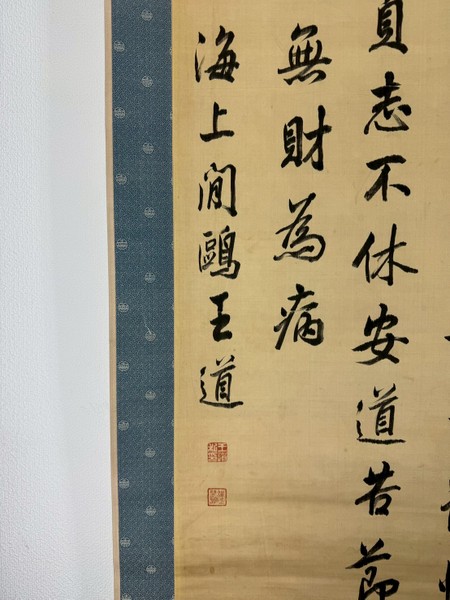 貞志不休安道苦節
無財為病
海上閒鷗王道